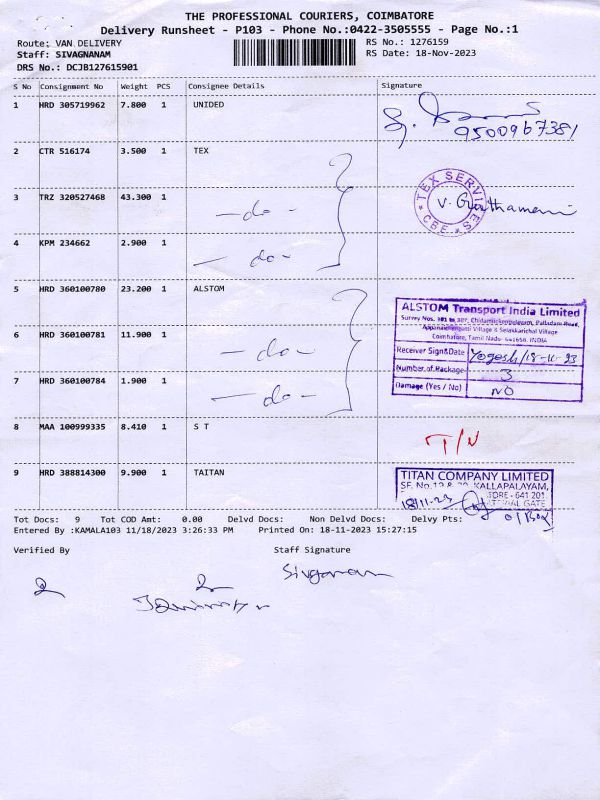 THE PROFESSIONAL COURIERS, COIMBATORE
Delivery Runsheet - P103 - Phone No.:0422-3505555 - Page No.:1
Route: VAN DELIVERY RS No.: 1276159
Staff: SIVAGNANAM RS Date: 18-Nov-2023
DRS No.: DCJB127615901
S No Consignment No Weight PCS Consignee Details Signature
1 HRD 305719962 7.800 1 UNIDED
9500967381
2 CTR 516174 3.500 1 TEX
TEX SERVICES
CBE
3 TRZ 320527468 43.300 1 -do-
4 KPM 234662 2.900 1 -do-
5 HRD 360100780 23.200 1 ALSTOM
ALSTOM Transport India Limited
Coimbatore, Tamil Nadu- 641658. INDIA
6 HRD 360100781 11.900 1 -do-
Receiver Sign&Date Yogesh/18-11-23
Number of Package 3
7 HRD 360100784 1.900 1 -do-
Damage (Yes / No) NO
8 MAA 100999335 8.410 1 S T T/N
9 HRD 388814300 9.900 1 TAITAN
TITAN COMPANY LIMITED
KALLAPALAYAM,
18/11-23 641 201
GATE
Tot Docs: 9 Tot COD Amt: 0.00 Delvd Docs: Non Delvd Docs: Delvy Pts:
Entered By :KAMALA103 11/18/2023 3:26:33 PM Printed On: 18-11-2023 15:27:15
Verified By Staff Signature